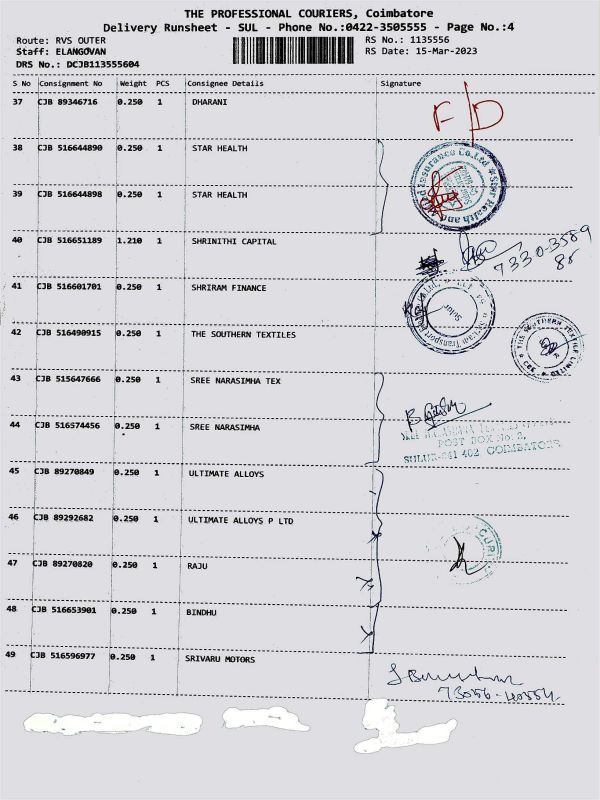 THE PROFESSIONAL COURIERS, Coimbatore
Delivery Runsheet - SUL - Phone No.:0422-3505555 - Page No.:4
Route: RVS OUTER RS No.: 1135556
Staff: ELANGOVAN RS Date: 15-Mar-2023
DRS No.: DCJB113555604
S No Consignment No Weight PCS Consignee Details Signature
37 CJB 89346716 0.250 1 DHARANI
F/D
38 CJB 516644890 0.250 1 STAR HEALTH
39 CJB 516644898 0.250 1 STAR HEALTH
Star Health and Insurance Co. Ltd
40 CJB 516651189 1.210 1 SHRINITHI CAPITAL
41 CJB 516601701 0.250 1 SHRIRAM FINANCE
Sulur
42 CJB 516490915 0.250 1 THE SOUTHERN TEXTILES
THE SOUTHERN TEXTILE LIMITED
43 CJB 515647666 0.250 1 SREE NARASIMHA TEX
44 CJB 516574456 0.250 1 SREE NARASIMHA
POST BOX No: 2,
SULUR-641 402 COIMBATORE
45 CJB 89270849 0.250 1 ULTIMATE ALLOYS
46 CJB 89292682 0.250 1 ULTIMATE ALLOYS P LTD
47 CJB 89270820 0.250 1 RAJU
48 CJB 516653901 0.250 1 BINDHU
49 CJB 516596977 0.250 1 SRIVARU MOTORS